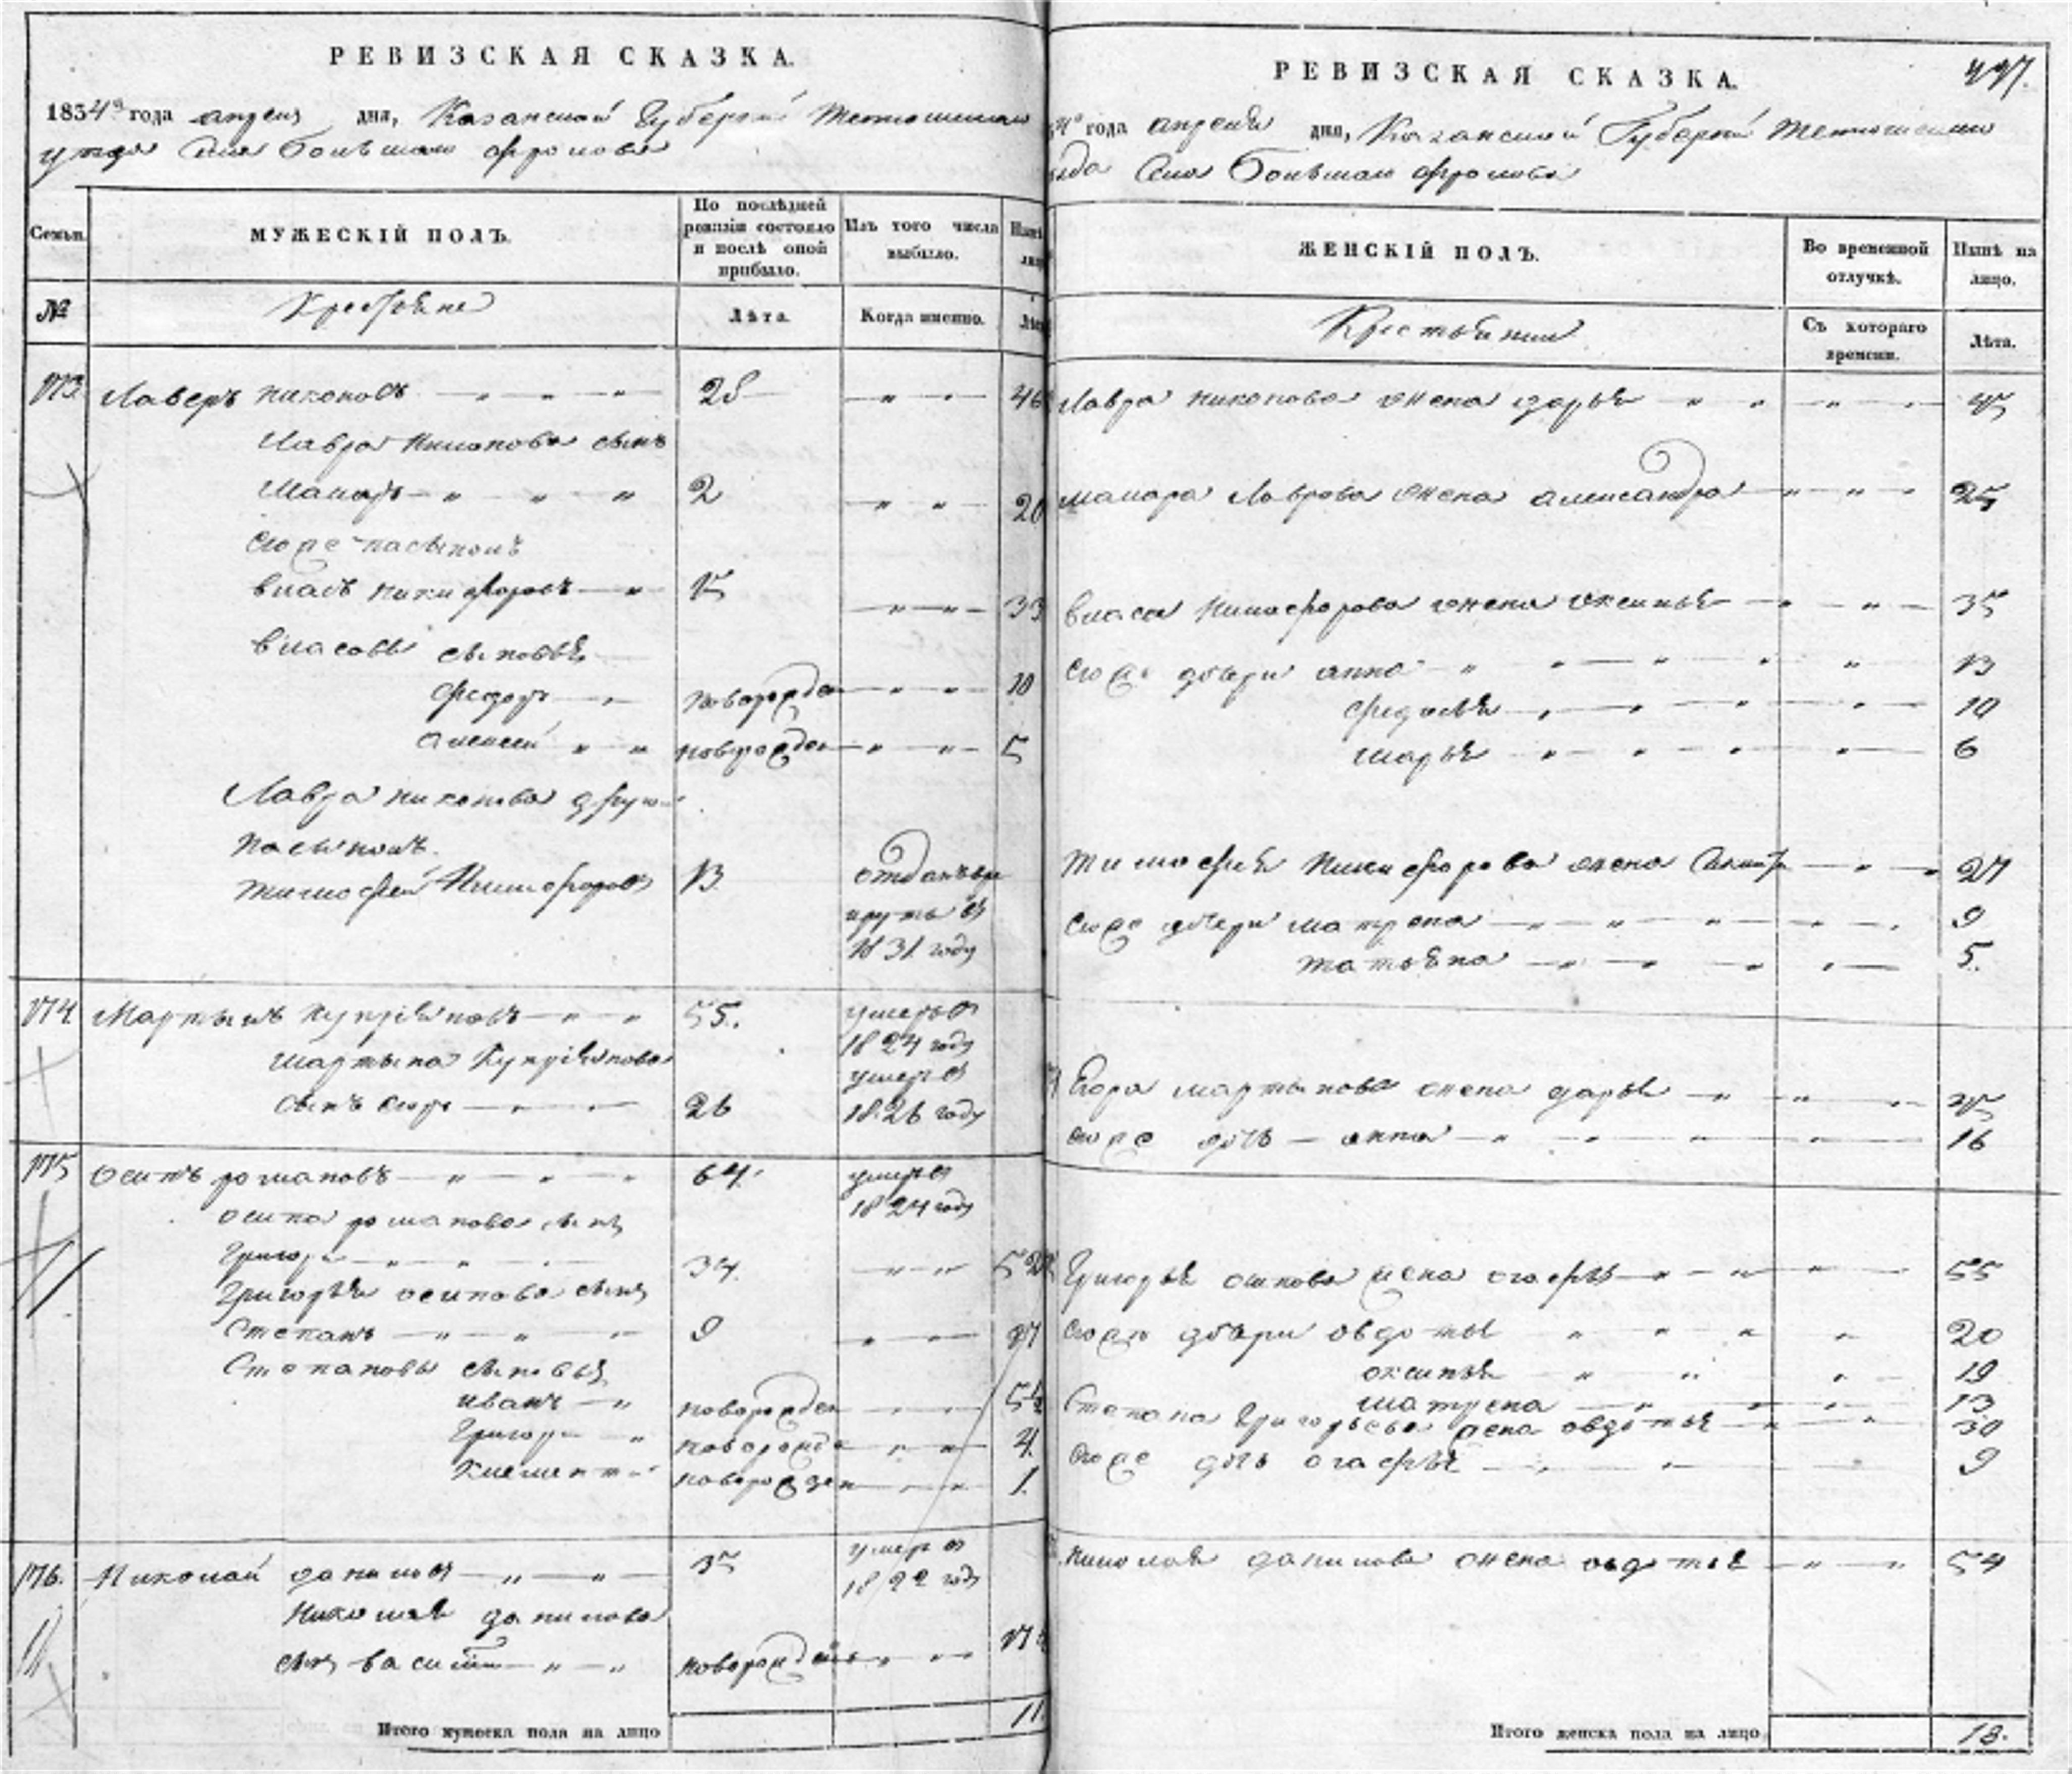 РЕВИЗСКАЯ СКАЗКА.
1834го года апреля дня, Казанской Губернии Тетюшскаго
уезда Села Большаго Фролова
Семьи. МУЖЕСКІЙ ПОЛЪ. По послѣдней ревизіи состояло и послѣ оной прибыло. Изъ того числа выбыло. Нынѣ на лицо
№ Крестьяне Лѣта. Когда именно. Лѣта
173. Лаверъ никоновъ — „ — „ — „ 28 — „ — „ — 46
Лавра Никонова сынъ
Макаръ — „ — „ — „ 2 — „ — „ — 20
Его же пасынокъ
власъ никифоровъ — „ 15 — „ — „ — 33
власовы сыновья
федоръ — „ новорожден — „ — „ — 10
Алексей „ „ новорожден — „ — „ — 5
Лавра никонова другой
пасынокъ
тимофей Никифоровъ 13 отданъ въ
рекруты въ
1831 году
174. Мартынъ Купріяновъ — „ — „ 55. умеръ въ
1824 году
мартына Купріянова
сынъ Егоръ — „ — „ 26 умеръ въ
1826 году
175 осипъ романовъ — „ — „ — „ 64. умеръ въ
1824 году
осипа романова сынъ
Григорей — „ — „ 34. — „ — „ 52
Григорья осипова сынъ
Степанъ — „ — „ — „ 9 — „ — „ 27
Степановы сыновья
иванъ — „ новорожден — „ — „ 5½
Григорей „ новорожден — „ — „ 4.
Клементей новорожден — „ — „ 1.
176. Николай даниловъ — „ — „ 35 умеръ въ
1822 году
Николая данилова
сынъ василей — „ — „ новорожденъ — „ — „
Итого мужеска пола на лицо 11
РЕВИЗСКАЯ СКАЗКА.
года апреля дня, Казанской Губерніи Тетюшскаго
уезда Села Большаго Фролова
ЖЕНСКІЙ ПОЛЪ. Во временной отлучкѣ. Нынѣ на лицо.
Крестьянки Съ котораго времени. Лѣта.
Лавра никонова жена дарья „ „ — „ — „ — 45
макара Лаврова жена александра — „ — „ — 25
власа Никифорова жена Оксинья — „ — „ — 35
Его же дочери анна — „ — „ — „ — „ 13
федосья — „ — „ — „ — „ — 10
марья — „ — „ — „ — „ — 6
тимофея Никифорова жена — „ — 27
Его же дочери матрена — „ — „ — „ — „ 9
татьяна — „ — „ — „ — „ — 5.
Егора мартынова жена дарья — „ — „ — „
его же дочь — анна — „ — „ — „ — „ 16
Григорья осипова жена огафья — „ — „ — „ 55
Его же дочери овдотья „ „ „ „ 20
оксинья „ „ „ 19
матрена — „ — „ — „ 13
Степана Григорьева жена овдотья — „ — „ — 30
Его же дочь огафья — „ — „ — 9
николая данилова жена овдотья — „ — „ 54
Итого женска пола на лицо 18.